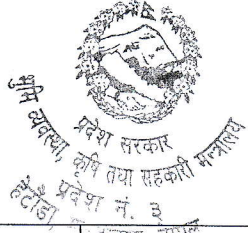 प्रदेश सरकार
भूमि व्यवस्था, कृषि तथा सहकारी मन्त्रालय
प्रदेश नं. ३
हेटौंडा